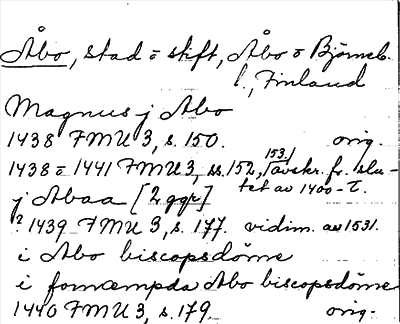 Åbo, stad o stift, Åbo o Björneb.
l., Finland
Magnus j Abo
1438 FMU 3, s. 150. orig.
1438 o 1441 FMU 3, ss. 152, 153, / avskr. fr. slu-
j Abaa [2 ggr] tet av 1400-t.
? 1439 FMU 3, s. 177. vidim. av 1531.
i Abo biscopsdöme
i fornæmpda Abo biscopsdöme
1440 FMU 3, s. 179. orig.